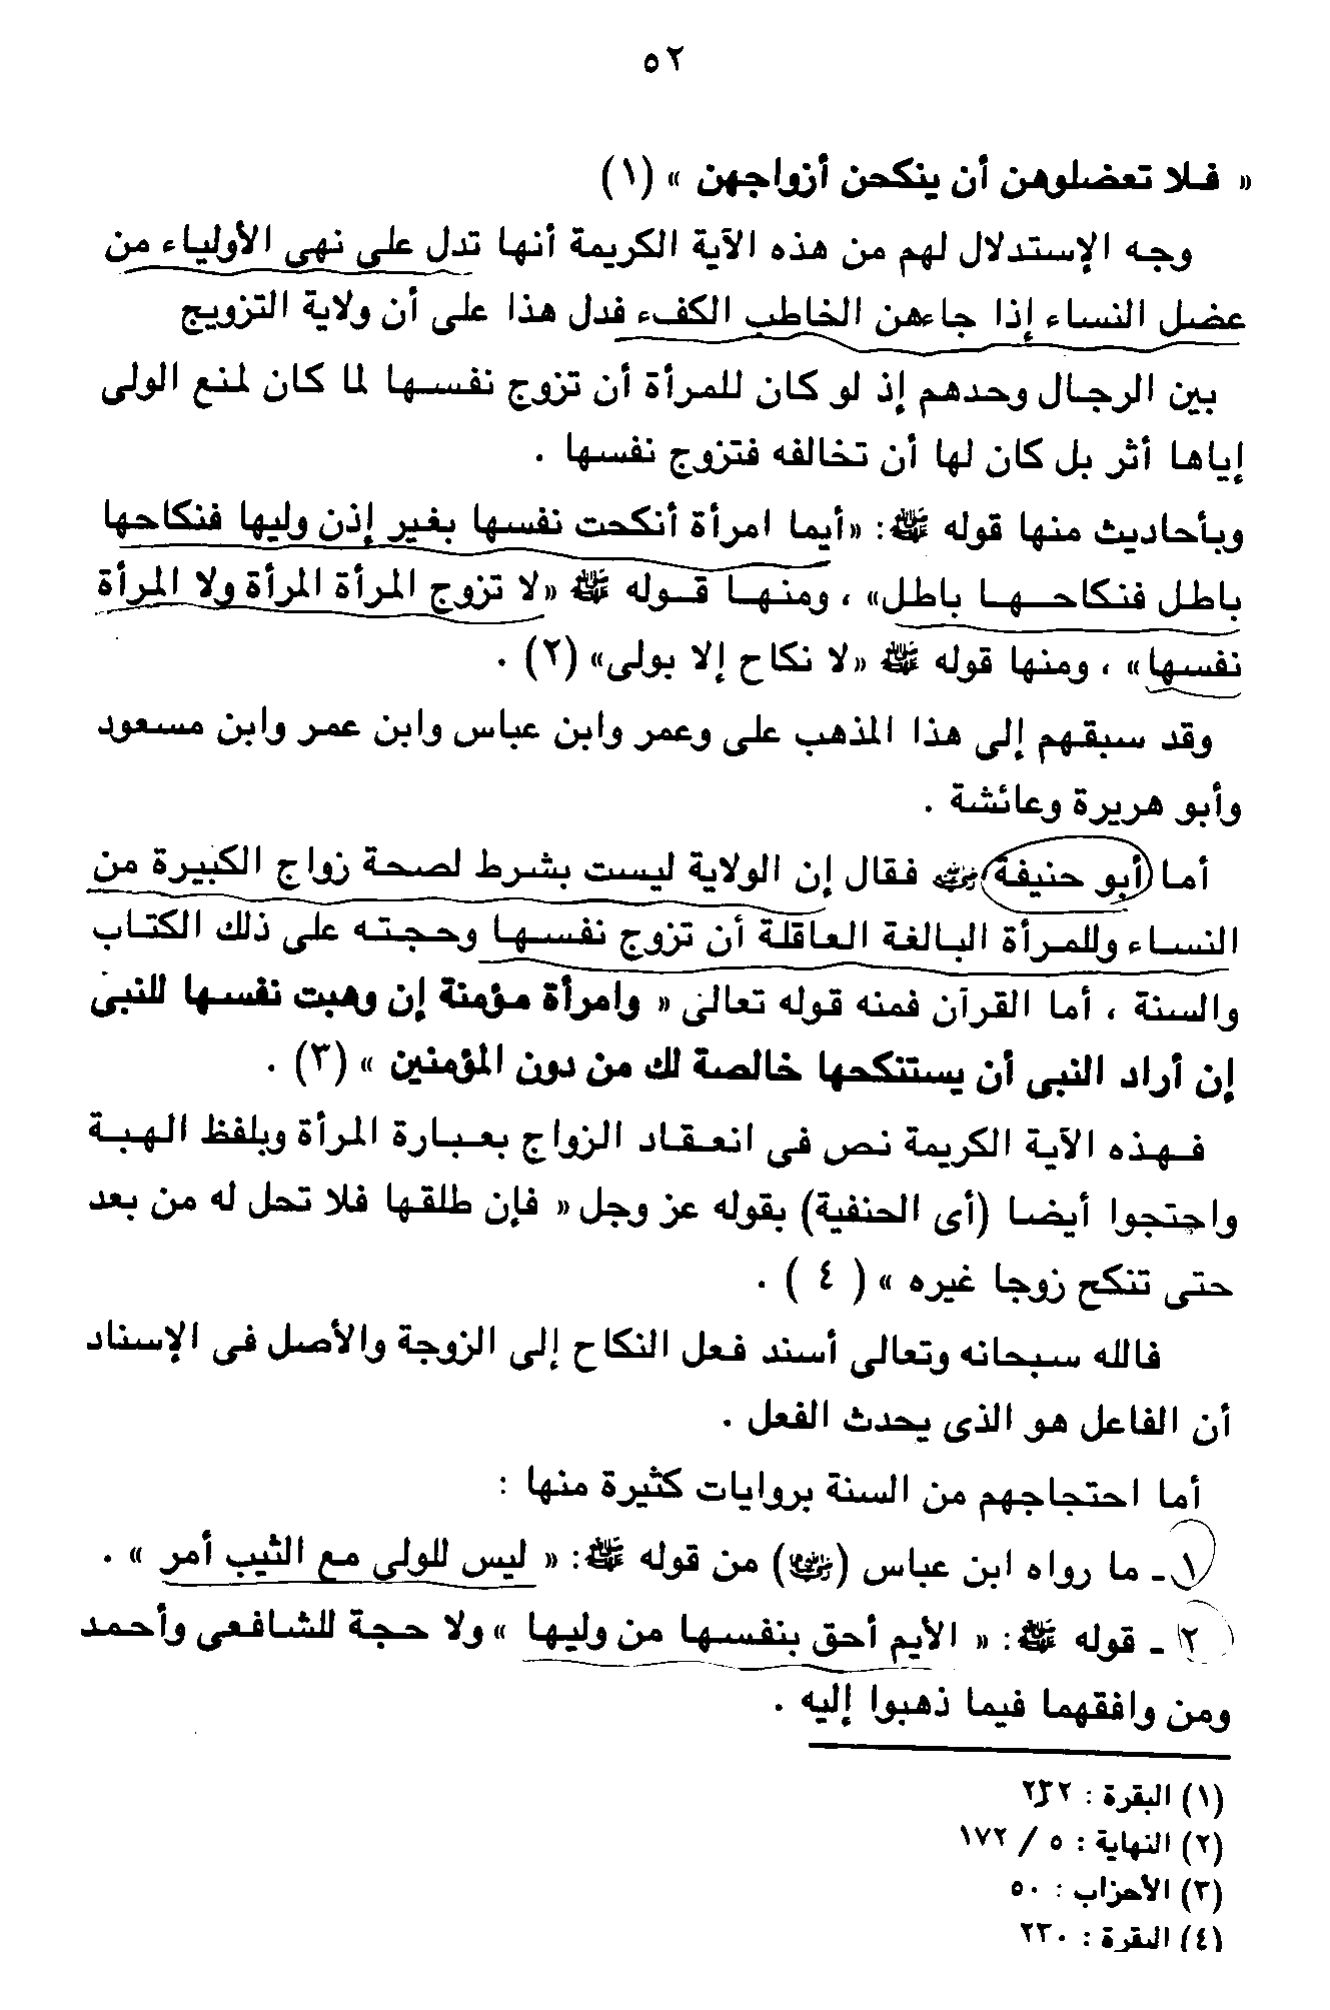 ٥٢
« فلا تعضلوهن أن ينكحن أزواجهن » (١)
وجه الإستدلال لهم من هذه الآية الكريمة أنها تدل على نهى الأولياء من
عضل النساء إذا جاءهن الخاطب الكفء فدل هذا على أن ولاية التزويج
بين الرجال وحدهم إذ لو كان للمرأة أن تزوج نفسها لما كان لمنع الولى
إياها أثر بل كان لها أن تخالفه فتزوج نفسها .
وبأحاديث منها قوله ﷺ: «أيما امرأة أنكحت نفسها بغير إذن وليها فنكاحها
باطل فنكاحها باطل» ، ومنها قوله ﷺ «لا تزوج المرأة المرأة ولا المرأة
نفسها» ، ومنها قوله ﷺ «لا نكاح إلا بولى» (٢) .
وقد سبقهم إلى هذا المذهب على وعمر وابن عباس وابن عمر وابن مسعود
وأبو هريرة وعائشة .
أما أبو حنيفة رضي الله عنه فقال إن الولاية ليست بشرط لصحة زواج الكبيرة من
النساء وللمرأة البالغة العاقلة أن تزوج نفسها وحجته على ذلك الكتاب
والسنة ، أما القرآن فمنه قوله تعالى « وامرأة مؤمنة إن وهبت نفسها للنبى
إن أراد النبى أن يستنكحها خالصة لك من دون المؤمنين » (٣) .
فهذه الآية الكريمة نص فى انعقاد الزواج بعبارة المرأة وبلفظ الهبة
واحتجوا أيضا (أى الحنفية) بقوله عز وجل « فإن طلقها فلا تحل له من بعد
حتى تنكح زوجا غيره » ( ٤ ) .
فالله سبحانه وتعالى أسند فعل النكاح إلى الزوجة والأصل فى الإسناد
أن الفاعل هو الذى يحدث الفعل .
أما احتجاجهم من السنة بروايات كثيرة منها :
١ - ما رواه ابن عباس (رضي الله عنه) من قوله ﷺ: « ليس للولى مع الثيب أمر » .
٢ - قوله ﷺ: « الأيم أحق بنفسها من وليها » ولا حجة للشافعى وأحمد
ومن وافقهما فيما ذهبوا إليه .
(١) البقرة : ٢٣٢
(٢) النهاية : ٥ / ١٧٢
(٣) الأحزاب : ٥٠
(٤) البقرة : ٢٣٠